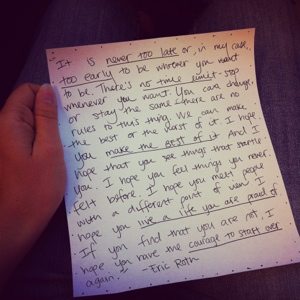 It is never too late or, in my case,
too early to be whoever you want
to be. There's no time limit - stop
whenever you want. You can change,
or stay the same - there are no
rules to this thing. We can make
the best or the worst of it. I hope
you make the best of it. And I
hope that you see things that startle
you. I hope you feel things you never
felt before. I hope you meet people
with a different point of view. I
hope you live a life you are proud of
If you find that you are not, I
hope you have the courage to start over
again. - Eric Roth